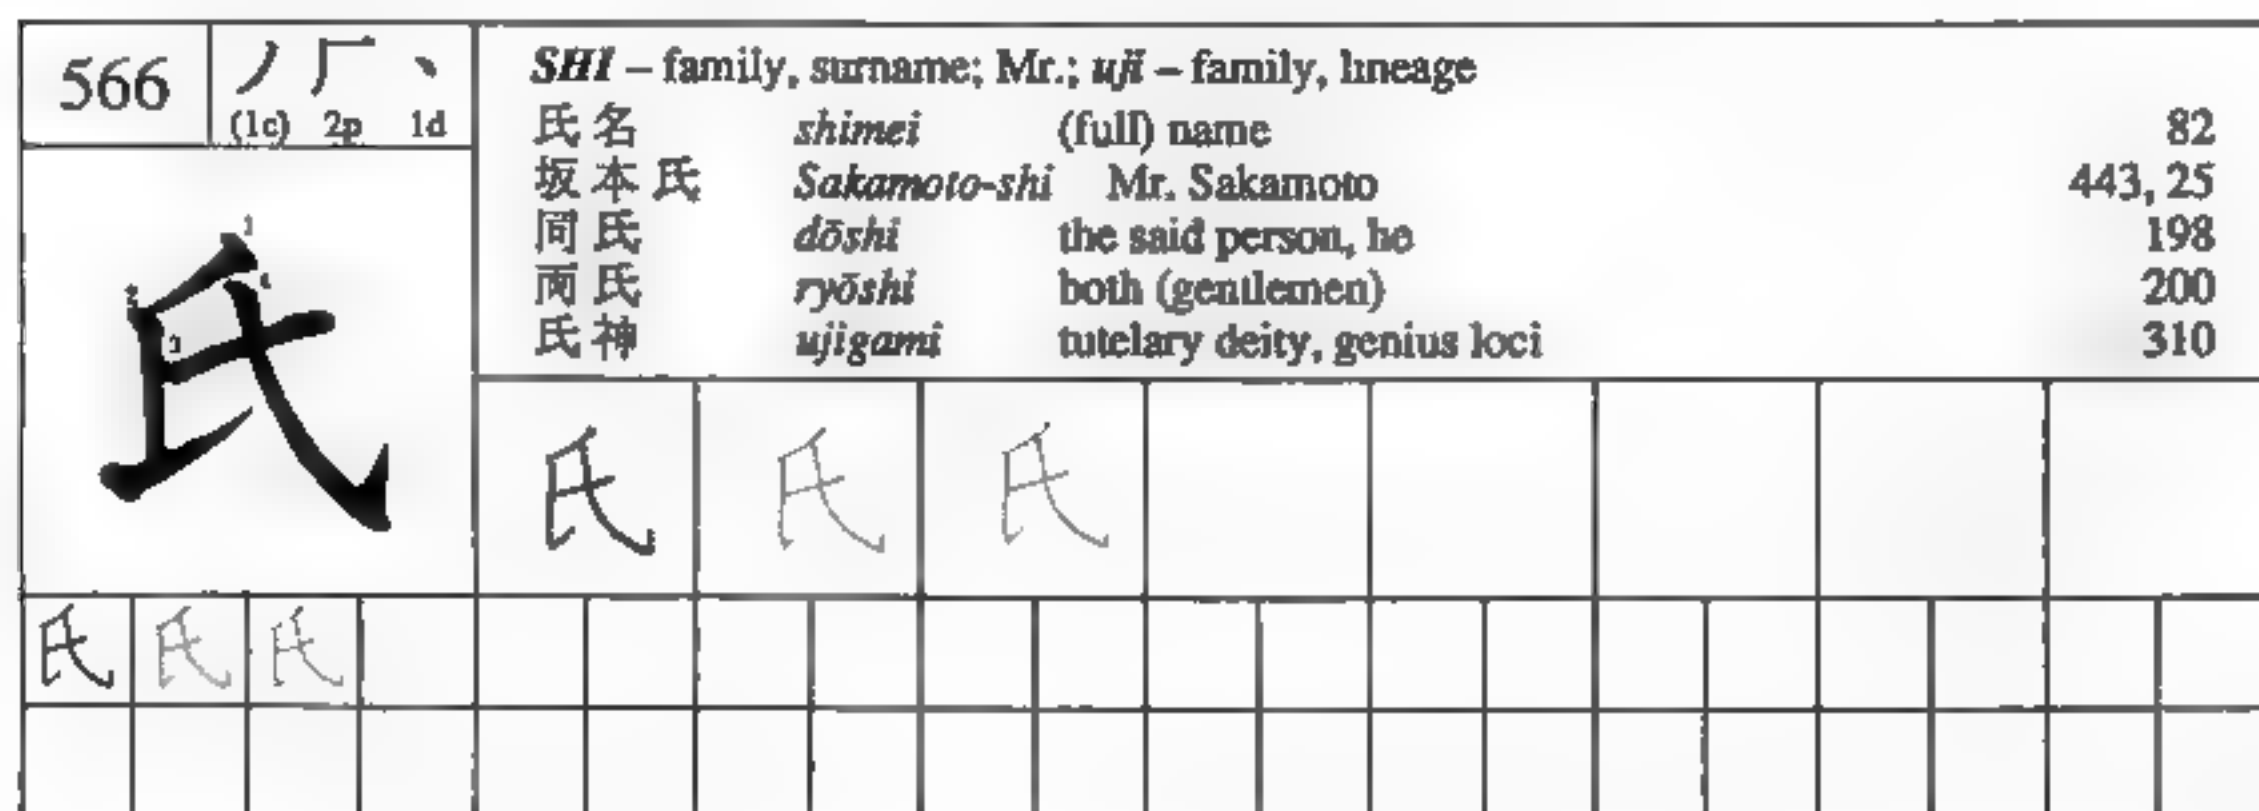 566
ノ 厂 丶
(1c) 2p 1d
SHI – family, surname; Mr.; uji – family, lineage
氏名 shimei (full) name 82
坂本氏 Sakamoto-shi Mr. Sakamoto 443, 25
同氏 dōshi the said person, he 198
両氏 ryōshi both (gentlemen) 200
氏神 ujigami tutelary deity, genius loci 310
1
2
3
4
氏
氏 氏 氏
氏 氏 氏